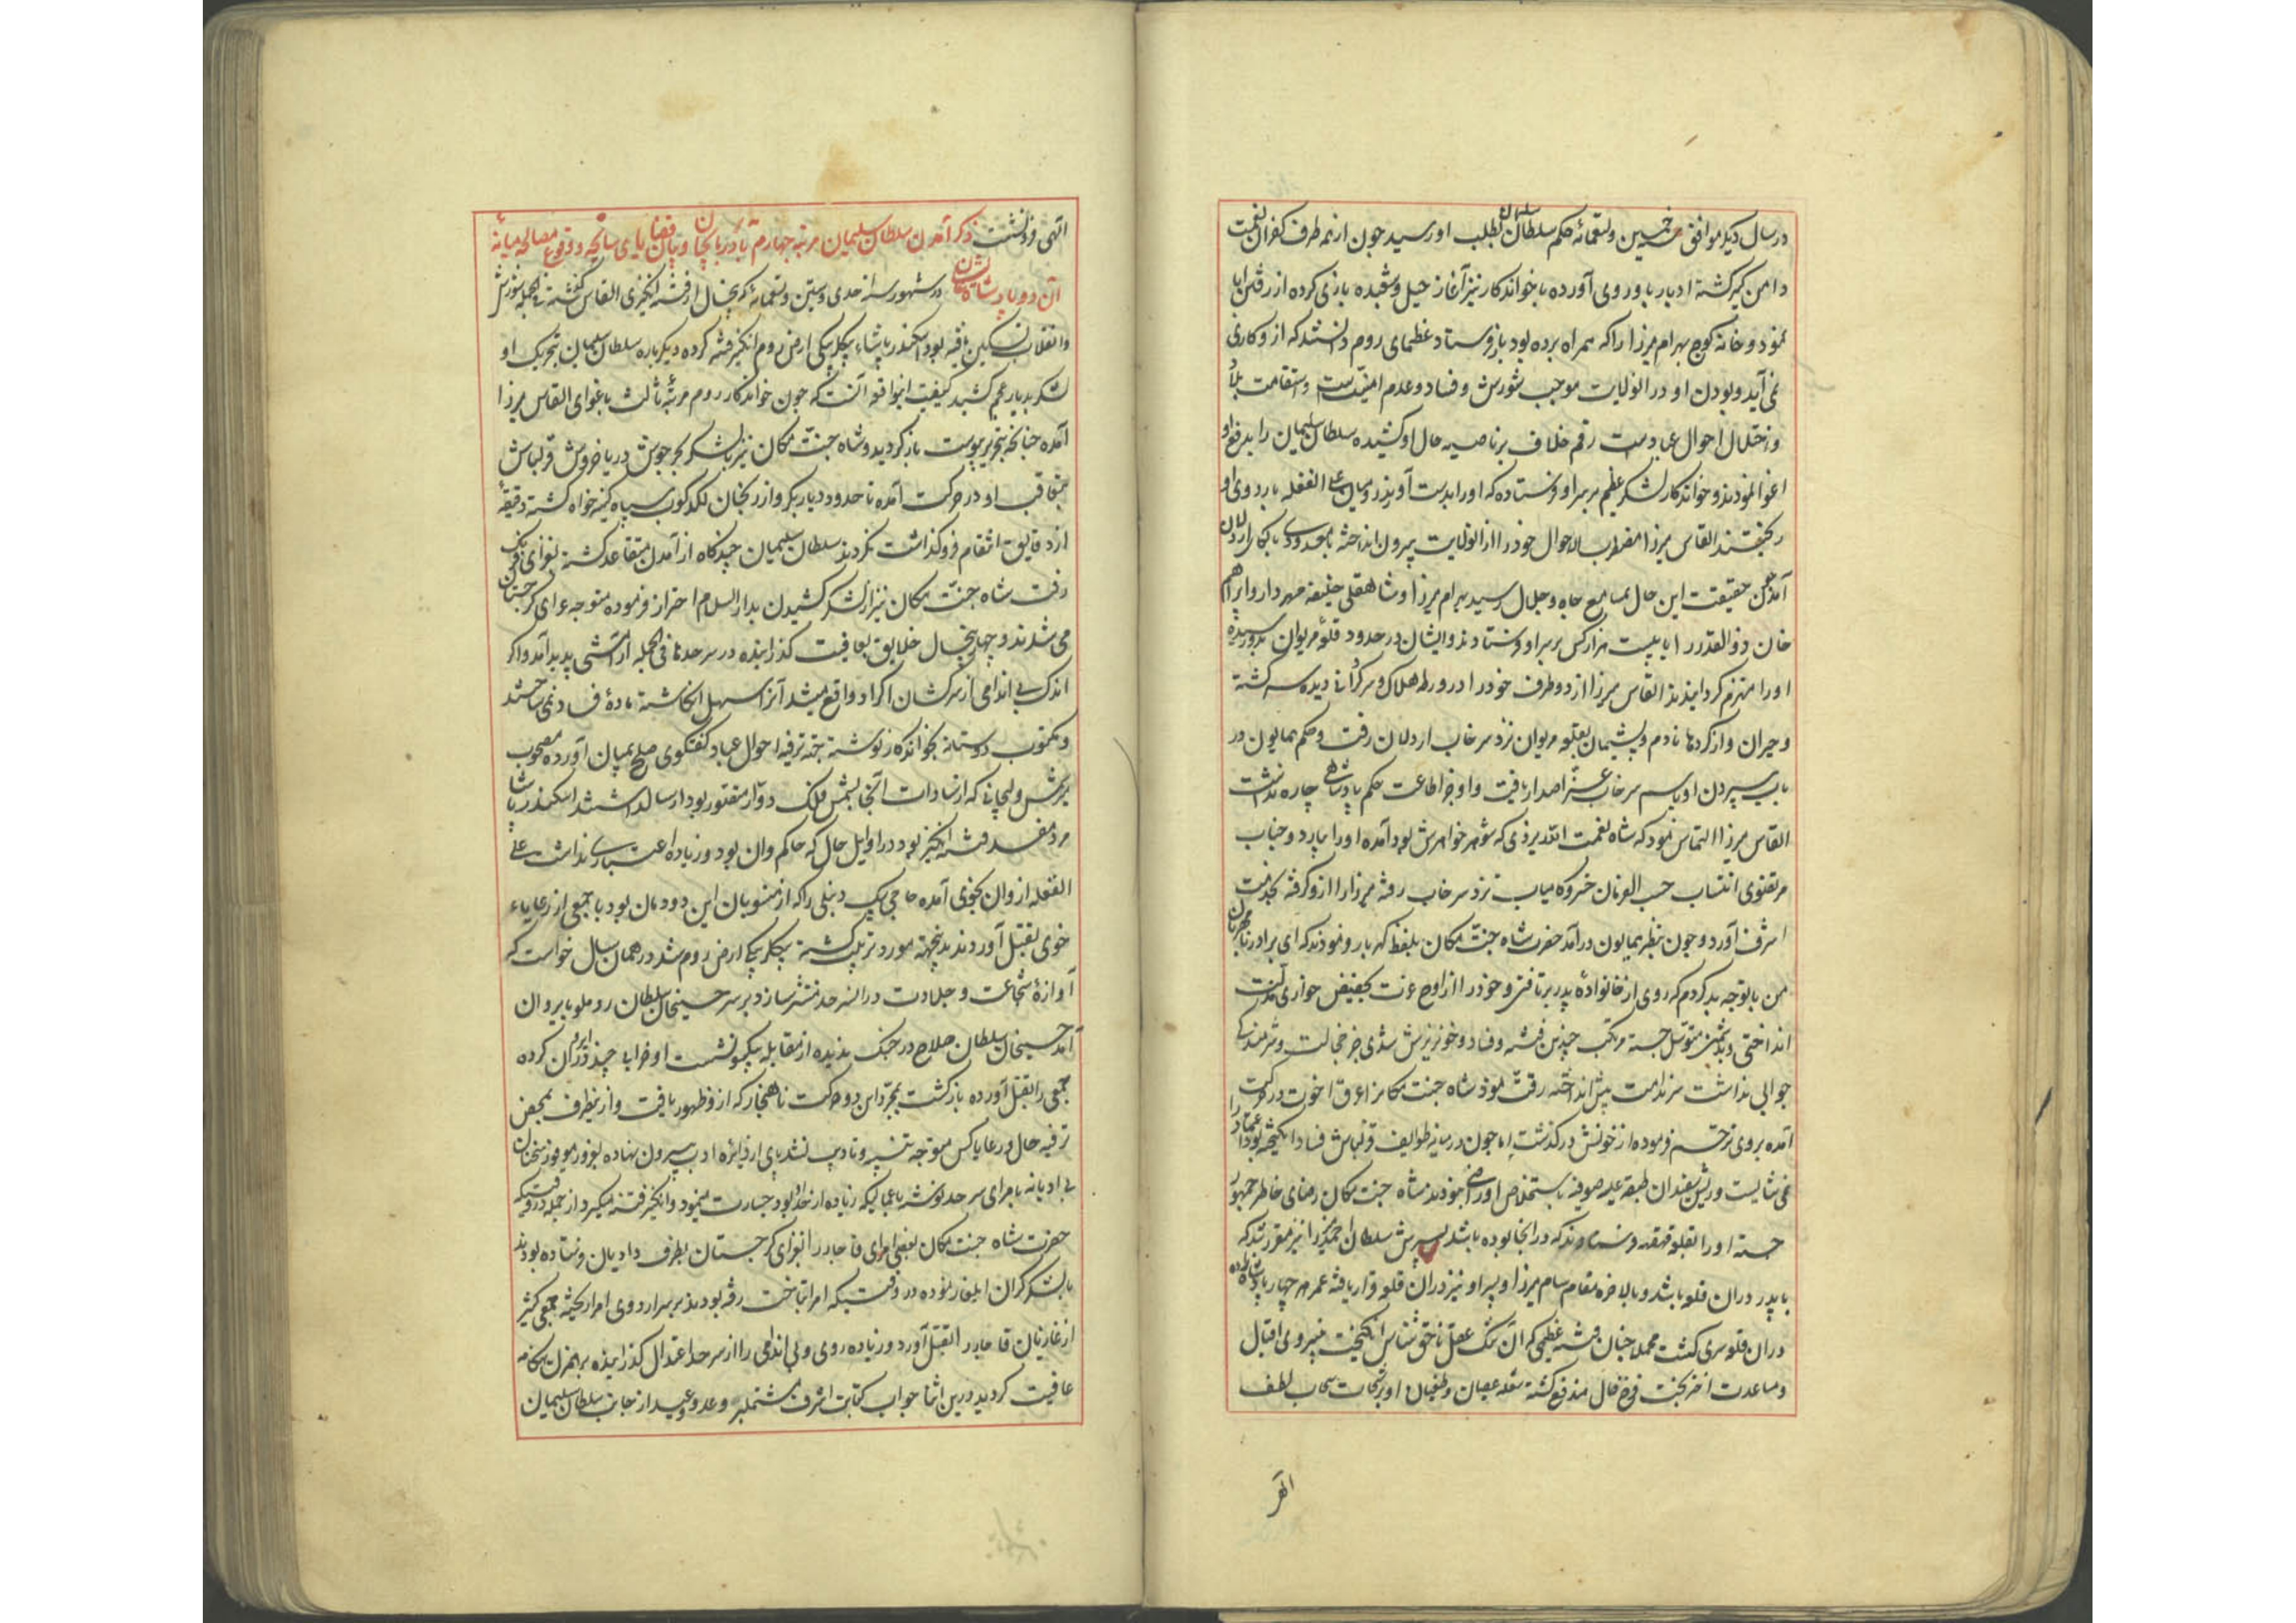 در سال دیکر موافق خمسین و تسعمائه حکم سلطان سلیمان بطلب او رسید چون از همه طرف کفران نعمت
دامن کیر کشته ادبار باو روی آورده با خواندکار نیز آغاز حیل و شعبده بازی کرده از رفتن ابا
نمود و خانه کوچ بهرام میرزا را که همراه برده بود باز فرستاد عظمای روم دانستند که از و کاری
نمی آید و بودن او در انولایت موجب شورش و فساد و عدم امنیت و استقامت بلاد
و اختلال احوال عباد است رقم خلاف بر ناصیه حال او کشیده سلطان سلیمان را بدفع او
اغوا نمودند و خواندکار لشکر عظیم بر سر او فرستاده که او را بدست آورند رومیان علی الغفله باردوی او
ریختند القاس میرزا مضطرب الاحوال خود را از انولایت بیرون انداخته با معدودی اردلان
آمد چون حقیقت این حال بمسامع جاه و جلال رسید بهرام میرزا و شاهقلی خلیفه مهردار و ابراهیم
خان ذوالقدر را با بیست هزار کس بر سر او فرستادند و ایشان در حدود قلعه مریوان بدو رسیده
او را منهزم کردانیدند القاس میرزا از دو طرف خود را در ورطه هلاک و سرکردانی دیده سرکشته
و حیران و از کردها نادم و پشیمان بقلعه مریوان نزد سرخاب اردلان رفت و حکم همایون در
باب سپردن او باسم سرخاب عز اصدار یافت و او جز اطاعت حکم پادشاهی چاره نداشت
القاس میرزا التماس نمود که شاه نعمت الله یزدی که شوهر خواهرش بود آمده او را ببارد و جناب
مرتضوی انتساب حسب الفرمان خسرو کامیاب نزد سرخاب رفته میرزا را ازو کرفته بخدمت
اشرف آورد و چون بنظر همایون درآمد حضرت شاه جنت مکان بلفظ کهربار فرمودند که ای برادر نامهربان
من با تو چه بد کردم که روی از خانواده پدر برتافتی و خود را از اوج عزت بحضیض خواری و مذلت
انداختی و بدشمن متوسل جسته مرتکب چندین فتنه و فساد و خونریزش شدی جز خجالت و شرمندکی
جوابی نداشت سر ندامت پیش انداخته رقت نمود شاه جنت مکان را عرق اخوت در حرکت
آمده بروی ترحم فرموده از خونش درکذشت اما چون در میانه طوایف قزلباش فساد انکیخته بود اعتماد را
نمی شایست و ریش سفیدان طبقه علیه صوفیه باستخلاص او راضی نبودند شاه جنت مکان رضای خاطر جمهور
جسته او را بقلعه قهقهه فرستادند که در انجا بوده باشد پسرش سلطان احمد میرزا نیز مقرر شد که
با پدر در ان قلعه باشد و بالاخره مقام سام میرزا و پسر او نیز در ان قلعه قرار یافته عمر هر چهار پادشاهزاده
در ان قلعه سری کشت مجملا چنان فتنه عظیمی که ان سبک عقل ناحق شناس انکیخت بنیروی اقبال
و مساعدت اختر بخت فرخ فال مندفع کشته شعله عصیان و طغیان او برشحات سحاب لطف
الهی
الهی فرونشست ذکر آمدن سلطان سلیمان مرتبه چهارم بآذربایجان و بیان قضایای سانحه و وقوع مصالحه میانه
آن دو پادشاه عالیشان در شهور سنه احدی و ستین و تسعمائه که پنجسال از فتنه انکیزی القاس کذشته فی الجمله شورش
و انقلاب تسکین یافته بود اسکندر پاشاء بیکلربیکی ارض روم انکیز فتنه کرده دیکر باره سلطان سلیمان بتحریک او
لشکر بدیار عجم کشید کیفیت انواقعه آنست که چون خواندکار روم مرتبه ثالث باغوای القاس میرزا
آمده چنانکه بتحریر پیوست باز کردید و شاه جنت مکان نیز با لشکر بحر جوش دریا خروش قزلباش
بتعاقب او در حرکت آمده تا حدود دیاربکر و ارزنجان لکدکوب سپاه کینه خواه کشته دقیقه
از دقایق انتقام فروکذاشت نکردند سلطان سلیمان چندکاه از آمدن متقاعد کشته بغزای فرنک
رفت شاه جنت مکان نیز از لشکر کشیدن بدار السلام احتراز فرموده متوجه غزای کرجستان
می شدند و چهار پنجسال خلایق بعافیت کذرانیده در سرحدها فی الجمله آرامشی پدید آمد و اکر
اندک بی اندامی از سرکشان اکراد واقع میشد آنرا سهل انکاشته ماده فساد نمی ساختند
و مکتوب دوستانه بخواندکار نوشته جهت ترفیه احوال عباد کفتکوی صلح بمیان آورده مصحوب
که از سادات آنجا بشمس فلک دوار مشهور بود ارسال داشتند اسکندر پاشا
مرد مفسد فتنه انکیز بود در اوایل حال که حاکم وان بود و زیاده اعتباری نداشت علی
الغفله از وان بخوی آمده حاجی بیک دنبلی را که از منسوبان این دودمان بود با جمعی از رعایاء
خوی بقتل آورد و بدینجهت مورد تربیت کشته بیکلربیکی ارض روم شد در همان سال خواست که
آوازه شجاعت و جلادت در انسرحد منتشر سازد بر سر حسینخان سلطان روملو بایروان
آمد حسینخان سلطان صلاح در جنک ندیده از مقابله یکسو نشست او خرابی چند در ایروان کرده
جمعی را بقتل آورده بازکشت بمجرد این دو حرکت ناهنجار که ازو ظهور یافت و از ینطرف بمحض
ترفیه حال رعایا کس متوجه تنبیه و تادیب نشد پای از دایره ادب بیرون نهاده بغرور موفور سخنان
بی ادبانه بامرای سرحد نوشته باعمالیکه زیاده از حد او بود جسارت مینمود و انکیز فتنه میکرد از جمله در وقتیکه
حضرت شاه جنت مکان بعضی امرای قاجار را بغزای کرجستان بطرف دادیان فرستاده بودند
با لشکر کران ایلغار نموده در وقتیکه امرا بتاخت رفته بودند بر سر اردوی امرا ریخته جمعی کثیر
از غازیان قاجار را بقتل آورد و زیاده روی و بی اندامی را از سر حد اعتدال کذرانیده برهمزن هنکامه
عافیت کردید درین اثنا جواب کتابت اشرف مشتمل بر وعد و وعید از جانب سلطان سلیمان